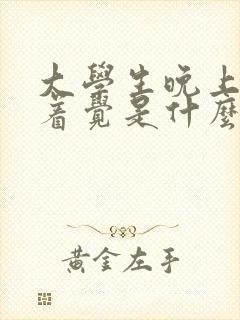 大學生晚上
着覺是什麼
黃金左手